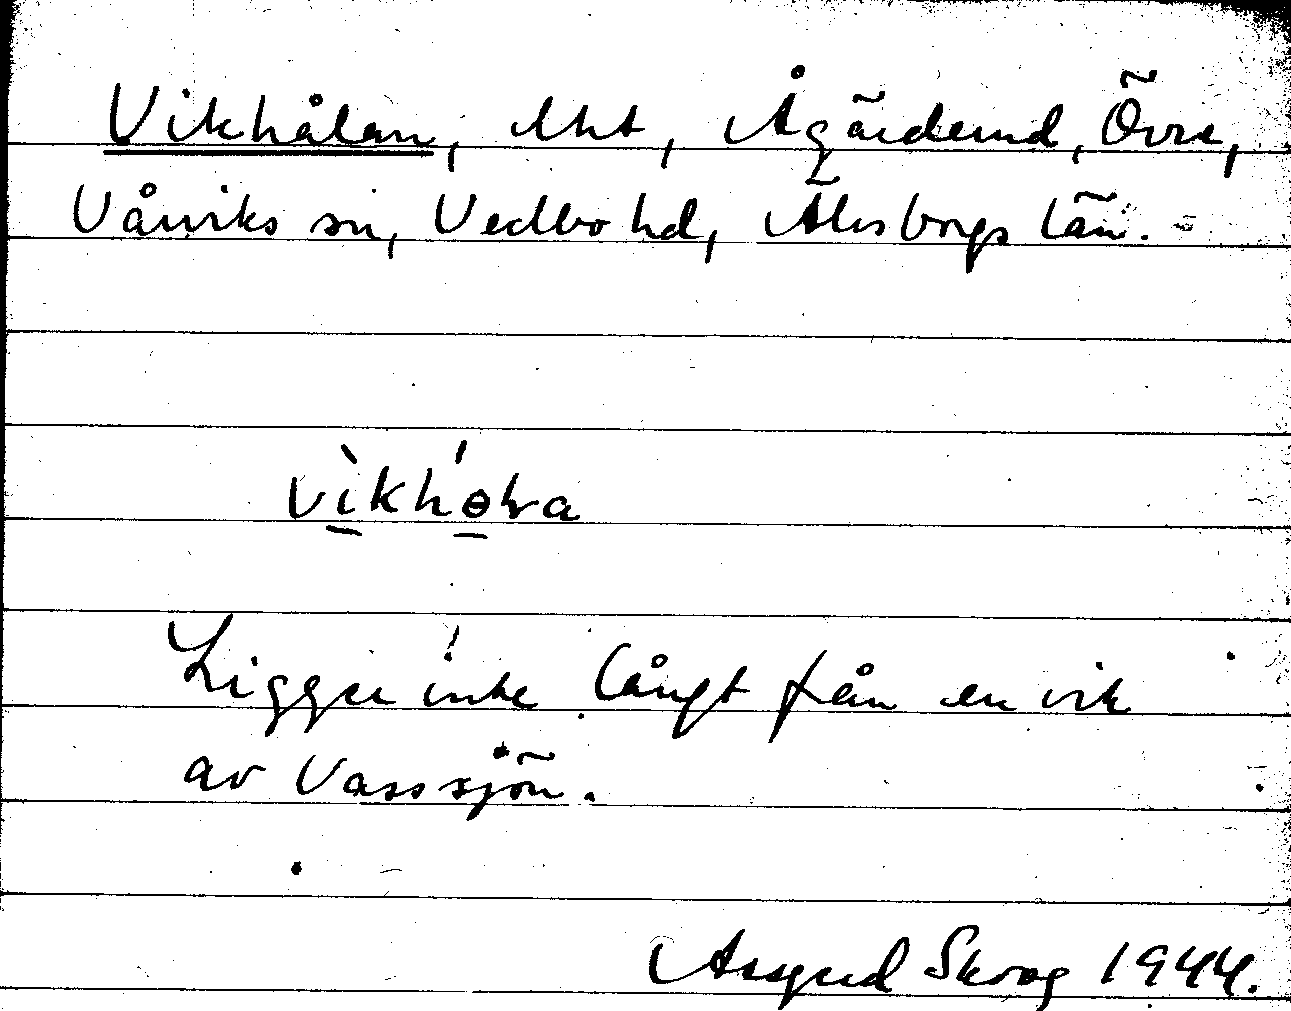 Vikhålan, Mkt, Ågärdemd, Övre,
Vårviks sn, Vedbo hd, Älvsborgs län.
vìkh́ɵɽa
Ligger inte långt från en vik
av Vassjön.
Assgerd Skoog 1944.